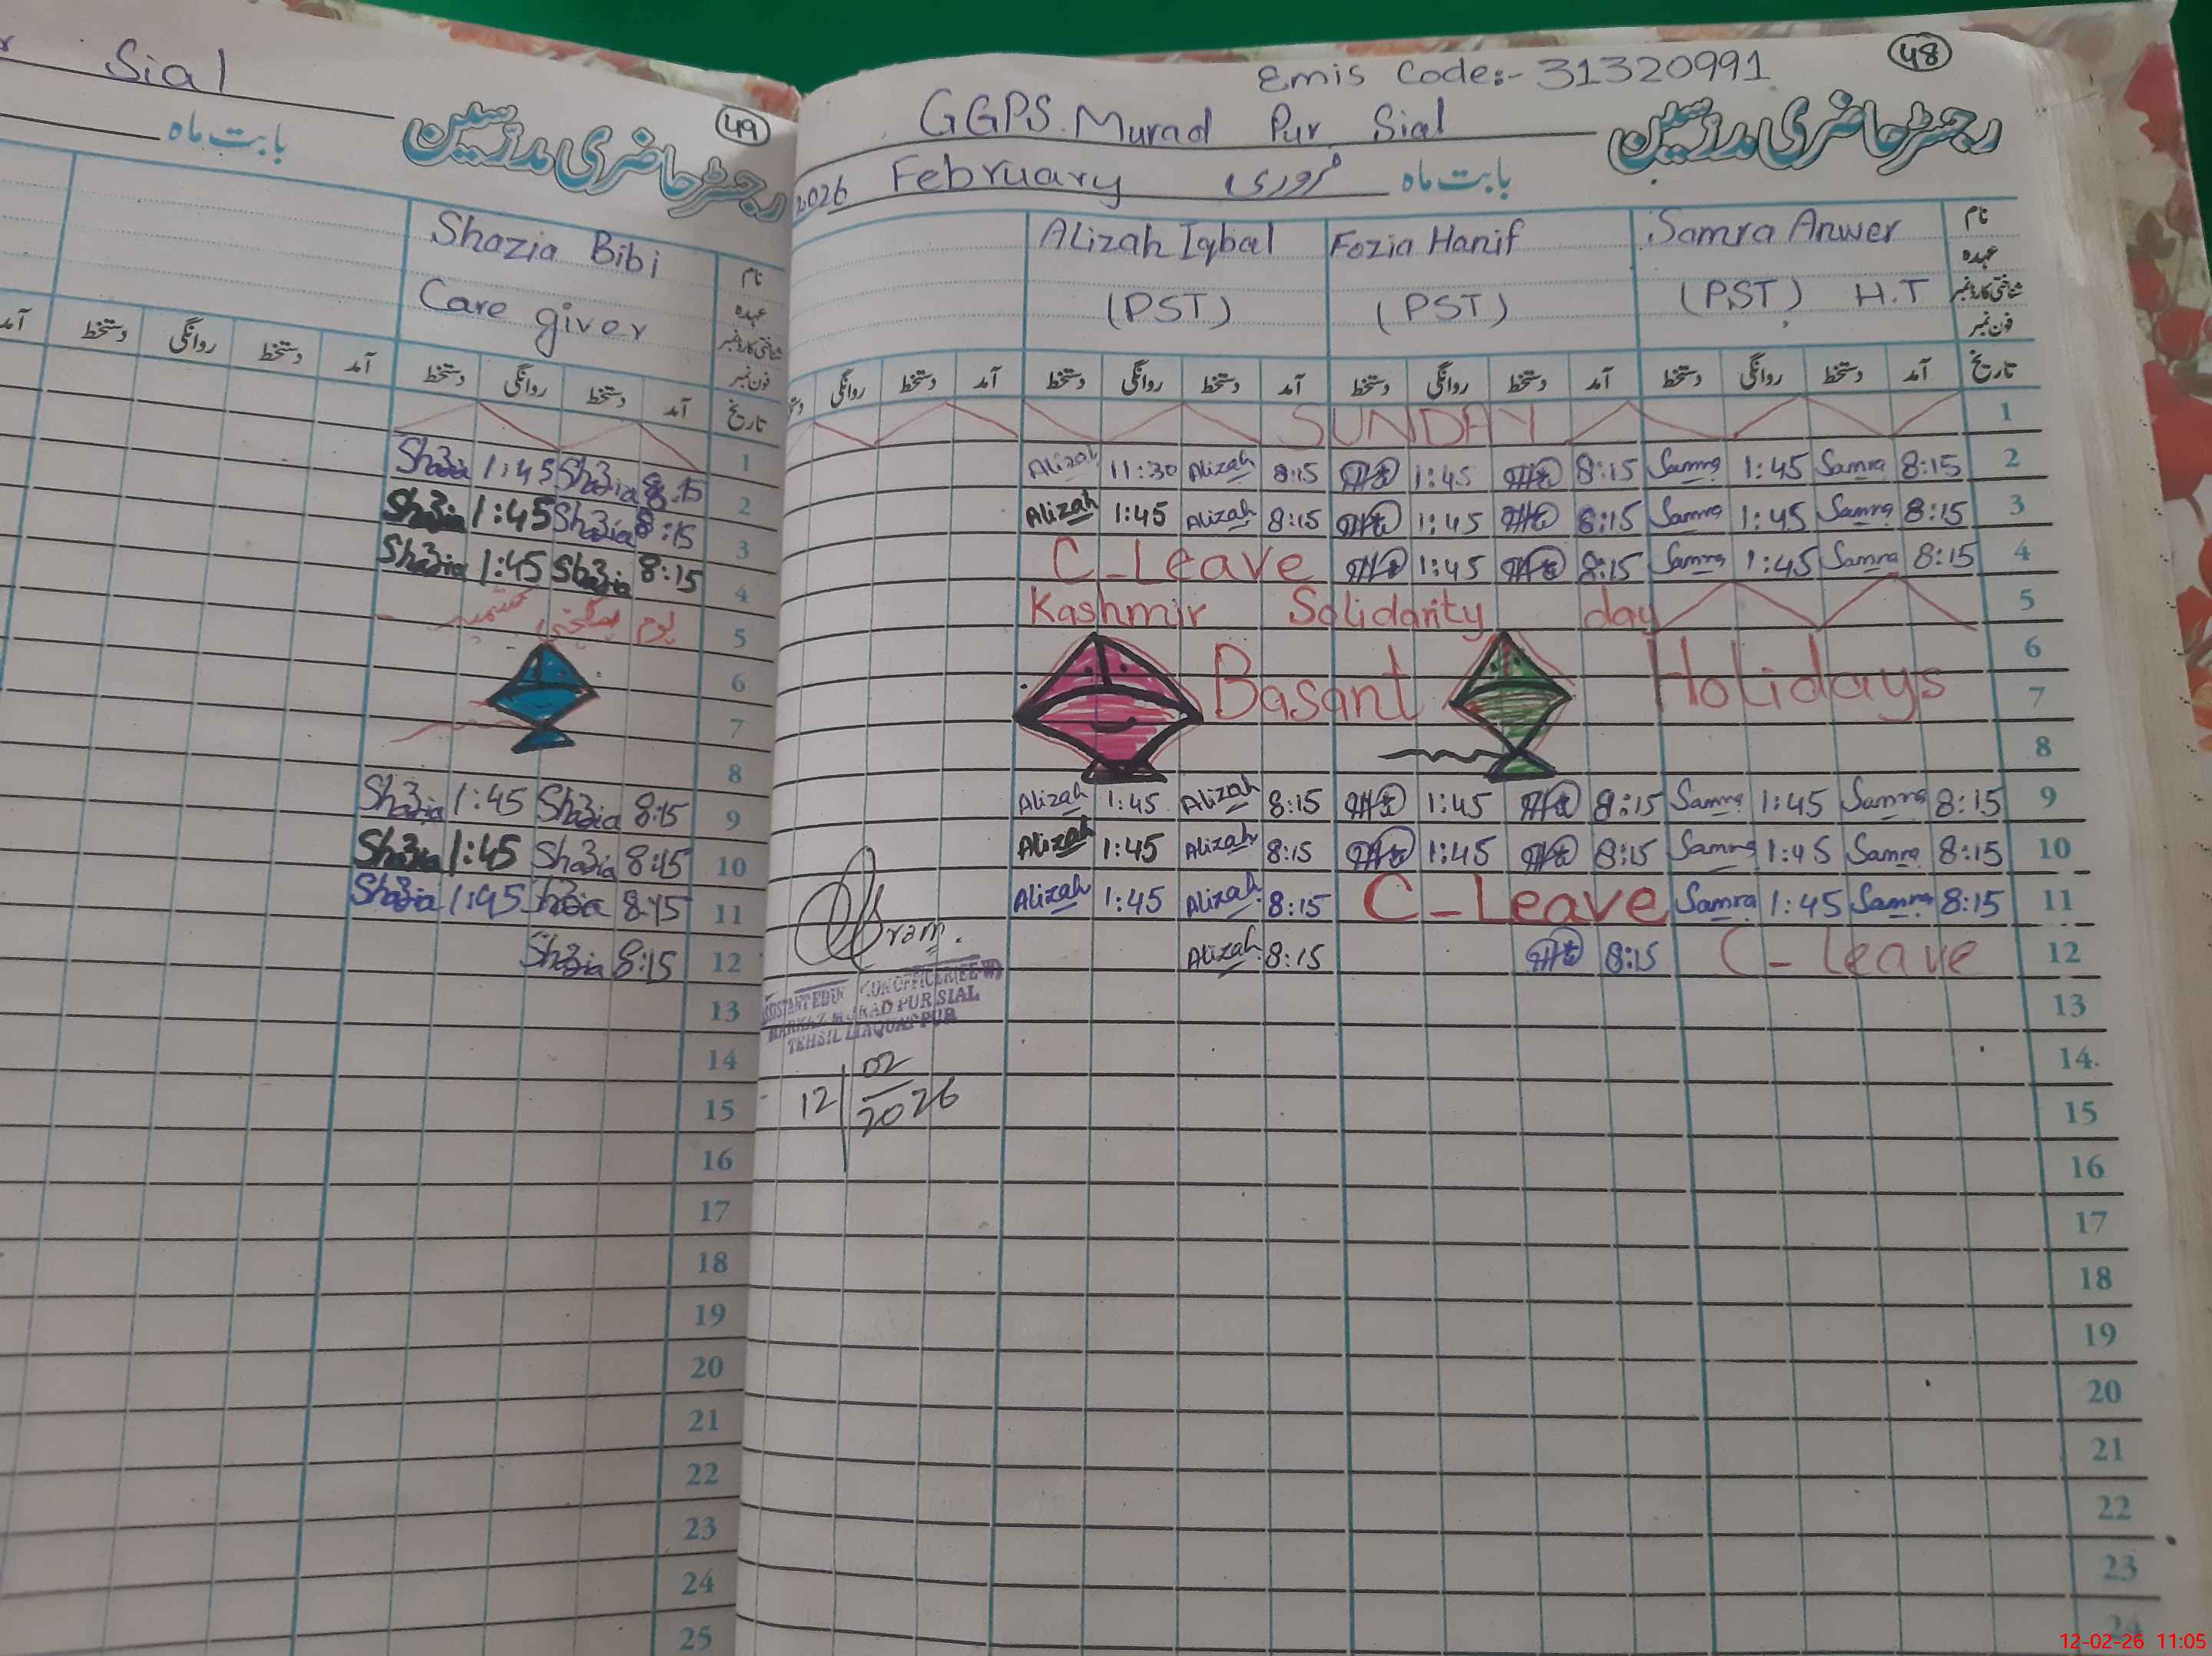 Sial
49
رجسٹر حاضری مدرسین
بابت ماہ
Shazia Bibi
Care giver
نام
عہدہ
شناختی کارڈ نمبر
فون نمبر
تاریخ آمد دستخط روانگی دستخط آمد دستخط روانگی دستخط آمد
1
Shazia 1:45 Shazia 8:15 2
Shazia 1:45 Shazia 8:15 3
Shazia 1:45 Shazia 8:15 4
یوم یکجہتی کشمیر 5
6
7
8
Shazia 1:45 Shazia 8:15 9
Shazia 1:45 Shazia 8:15 10
Shazia 1:45 Shazia 8:15 11
Shazia 8:15 12
13
14
15
16
17
18
19
20
21
22
23
24
25
48
Emis Code:- 31320991
GGPS. Murad Pur Sial
رجسٹر حاضری مدرسین
2026 February فروری بابت ماہ
Alizah Iqbal Fozia Hanif Samra Anwer نام
عہدہ
(PST) (PST) (PST) H.T شناختی کارڈ نمبر
فون نمبر
تاریخ آمد دستخط روانگی دستخط آمد دستخط روانگی دستخط آمد دستخط روانگی دستخط آمد دستخط روانگی
SUNDAY 1
Alizah 11:30 Alizah 8:15 1:45 8:15 Samra 1:45 Samra 8:15 2
Alizah 1:45 Alizah 8:15 1:45 8:15 Samra 1:45 Samra 8:15 3
C-Leave 1:45 8:15 Samra 1:45 Samra 8:15 4
Kashmir Solidarity day 5
6
Basant Holidays 7
8
Alizah 1:45 Alizah 8:15 1:45 8:15 Samra 1:45 Samra 8:15 9
Alizah 1:45 Alizah 8:15 1:45 8:15 Samra 1:45 Samra 8:15 10
Alizah 1:45 Alizah 8:15 C-Leave Samra 1:45 Samra 8:15 11
Alizah 8:15 8:15 C-Leave 12
MARKAZ MURAD PUR SIAL
TEHSIL LIAQUATPUR
12/02/2026
13
14
15
16
17
18
19
20
21
22
23
24
12-02-26 11:05